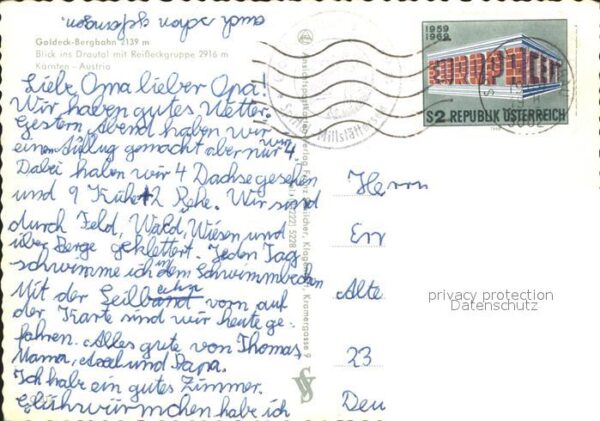 auch schon gefangen.
Goldeck-Bergbahn 2139 m
Blick ins Drautal mit Reißeckgruppe 2916 m
Kärnten - Austria
Liebe Oma lieber Opa!
Wir haben gutes Wetter.
Gestern Abend haben wir
einen Ausflug gemacht aber nur 4,
Dabei haben wir 4 Dachse gesehen
und 9 Kühe + 2 Rehe. Wir sind
durch Feld, Wald, Wiesen und
über Berge geklettert. Jeden Tag
schwimme ich im dem Schwimmbecken
Mit der Seilbahn vorn auf
der Karte sind wir heute ge-
fahren. Alles gute von Thomas
Mama, Axel und Papa.
Ich habe ein gutes Zimmer.
Glühwürmchen habe ich
1959
1969
EUROPA CEPT
S2 REPUBLIK ÖSTERREICH
Millstättersee
Kramergasse 9
Herrn
Err
Alte
23
Deu
privacy protection
Datenschutz